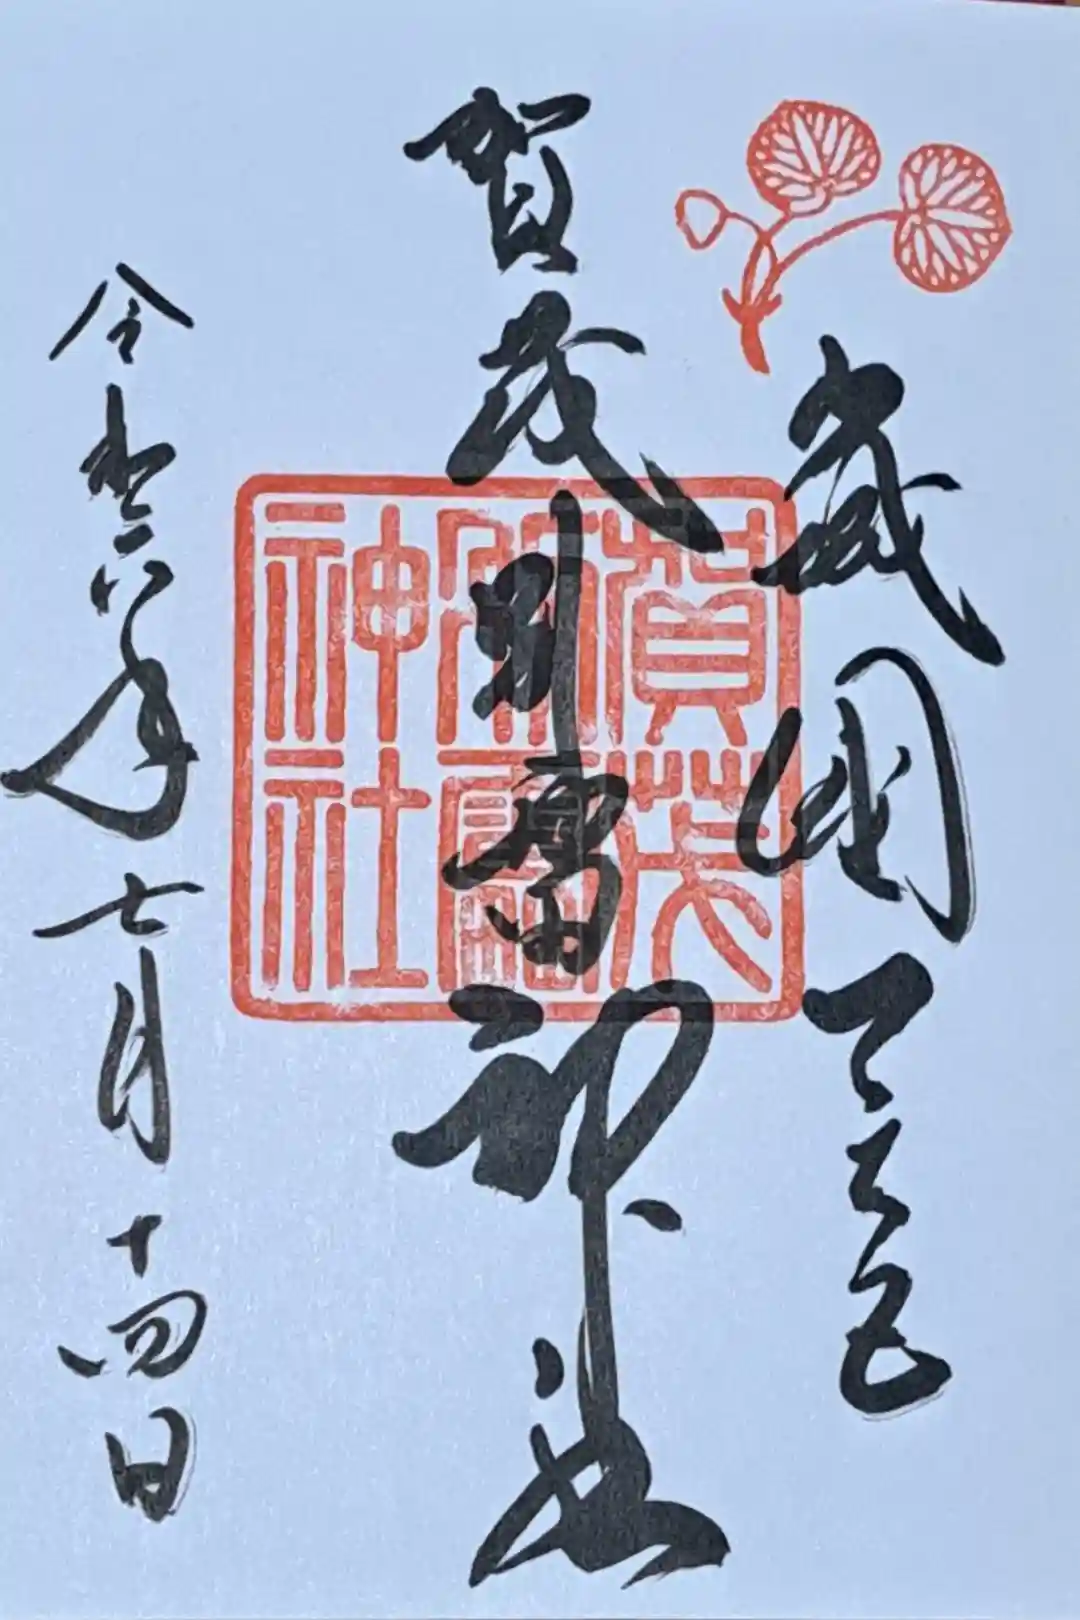 山城国一之宮
賀茂別雷神社
令和六年七月十四日
賀茂
別雷
神社